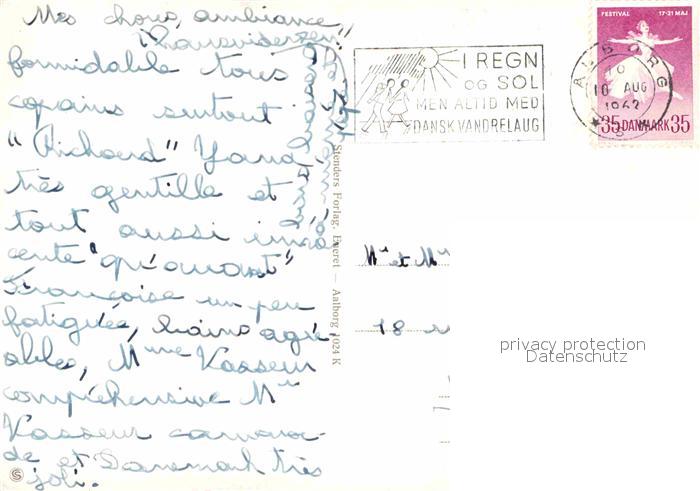 Mes choux, ambiance
formidable tous
copains surtout
"Richard" Yana
très gentille et
tout aussi inno
cente "qu'avant"
Françoise un peu
fatiguée, bains agré-
ables, Mme Vasseur
compréhensive Mr
Vasseur camara-
de et Danemark très
joli.
Stenders Forlag, Eneret — Aalborg 1024 K
I REGN
OG SOL
MEN ALTID MED
DANSK VANDRELAUG
AALBORG
10 AUG
1962
FESTIVAL 17-31 MAJ
35 DANMARK 35
Mr et Mm
18
privacy protection
Datenschutz